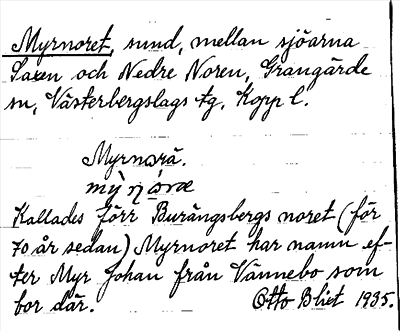 Myrnoret, sund, mellan sjöarna
Saxen och Nedre Noren, Grangärde
sn, Västerbergslags tg, Kopp l.
Myrnorä.
Kallades förr Burängsbergs noret (för
70 år sedan) Myrnoret har namn ef-
ter Myr Johan från Vännebo som
bor där. Otto Blixt 1935.